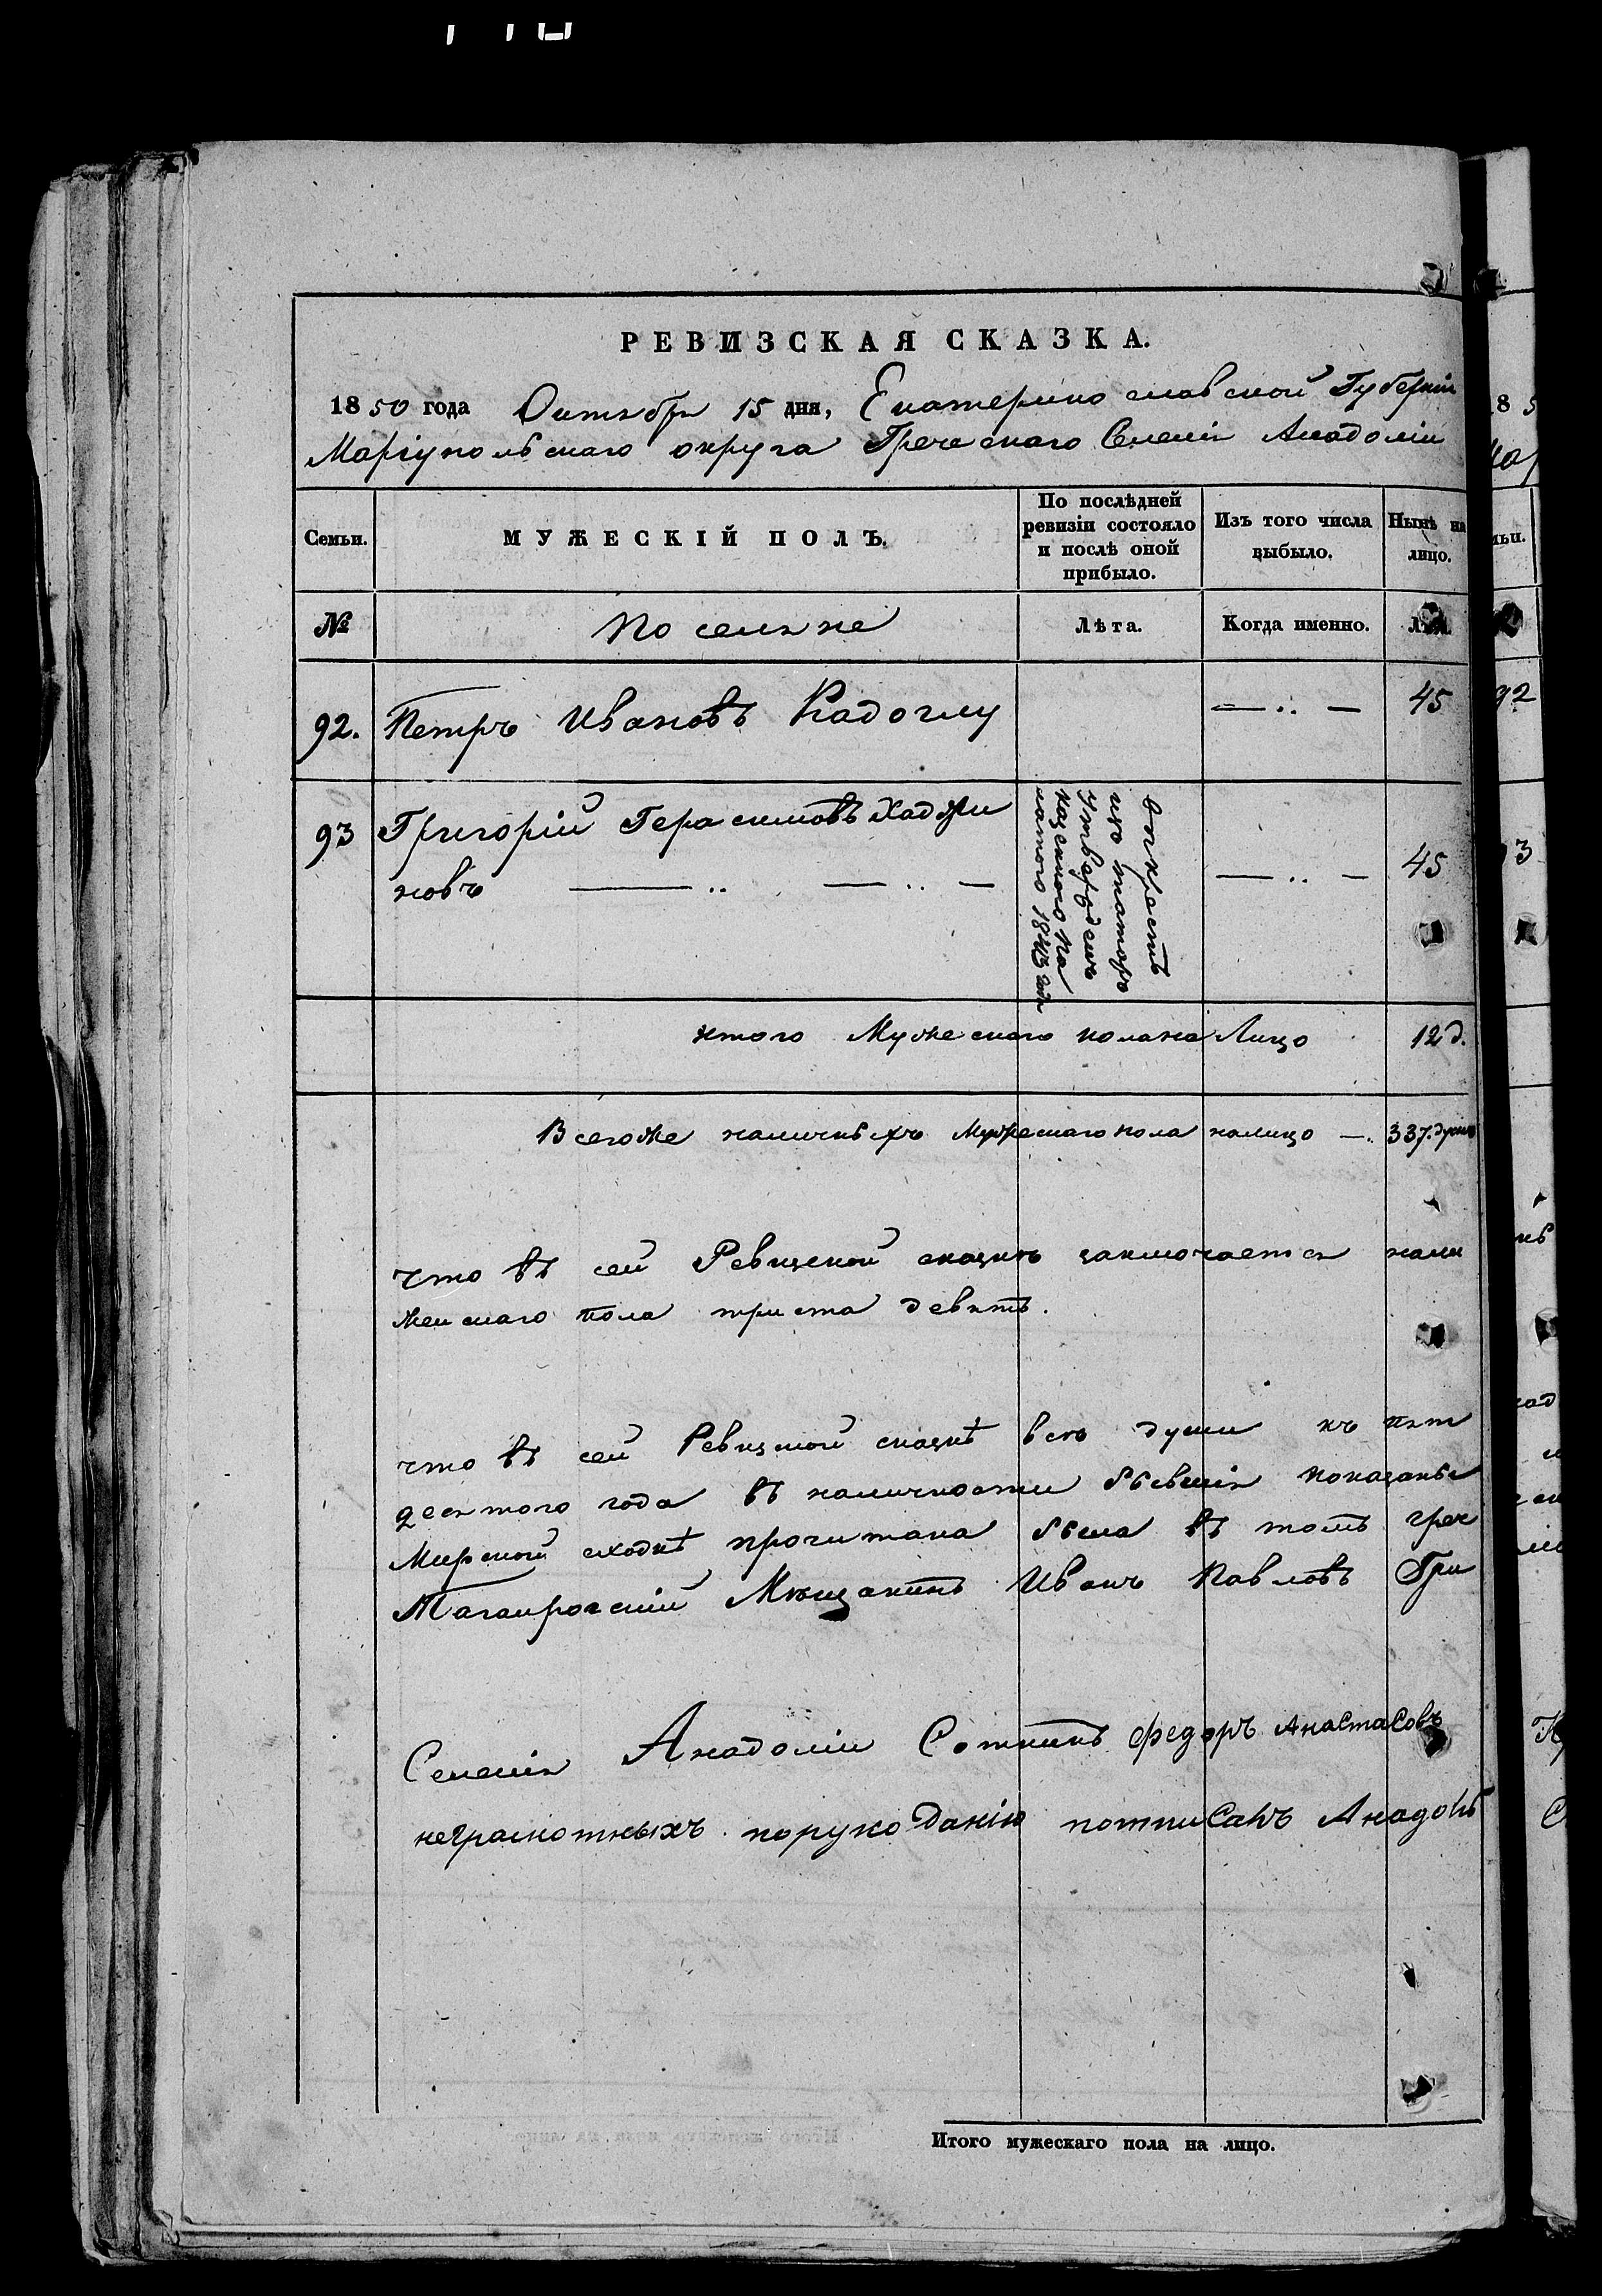 РЕВИЗСКАЯ СКАЗКА.
1850 года Октября 15 дня, Екатеринославской Губерніи
Маріупольскаго округа Греческаго Селенія Анадоліи
Семьи.
МУЖЕСКІЙ ПОЛЪ.
По послѣдней ревизіи состояло и послѣ оной прибыло.
Изъ того числа выбыло.
Нынѣ на лицо.
№
Поселяне
Лѣта.
Когда именно.
92. Петръ Ивановъ Кадоглу — .. — 45
93 Григорій Герасимовъ Хаджи
новъ — .. — .. — — .. — 45
вокрестъ
изъ татаръ
утвержденъ
казенною Па
латою 1843 года
итого Мужескаго пола на Лицо 12 д.
Всегоже наличныхъ Мужескаго пола налицо —. 337. душъ
что въ сей Ревизской сказкѣ заключается нали
Женскаго пола триста девять.
что въ сей Ревизской сказкѣ всѣ души къ пят
десятого года въ наличности бывшія показаны
Мирской сходкѣ прочитана была въ томъ греч
Таганрогскій Мѣщанинъ Иванъ Павловъ Гри
Селенія Анадоліи Сотникъ Федоръ Анастасовъ
неграмотныхъ порукоданію потписалъ Анадоль
Итого мужескаго пола на лицо.
18 5
92